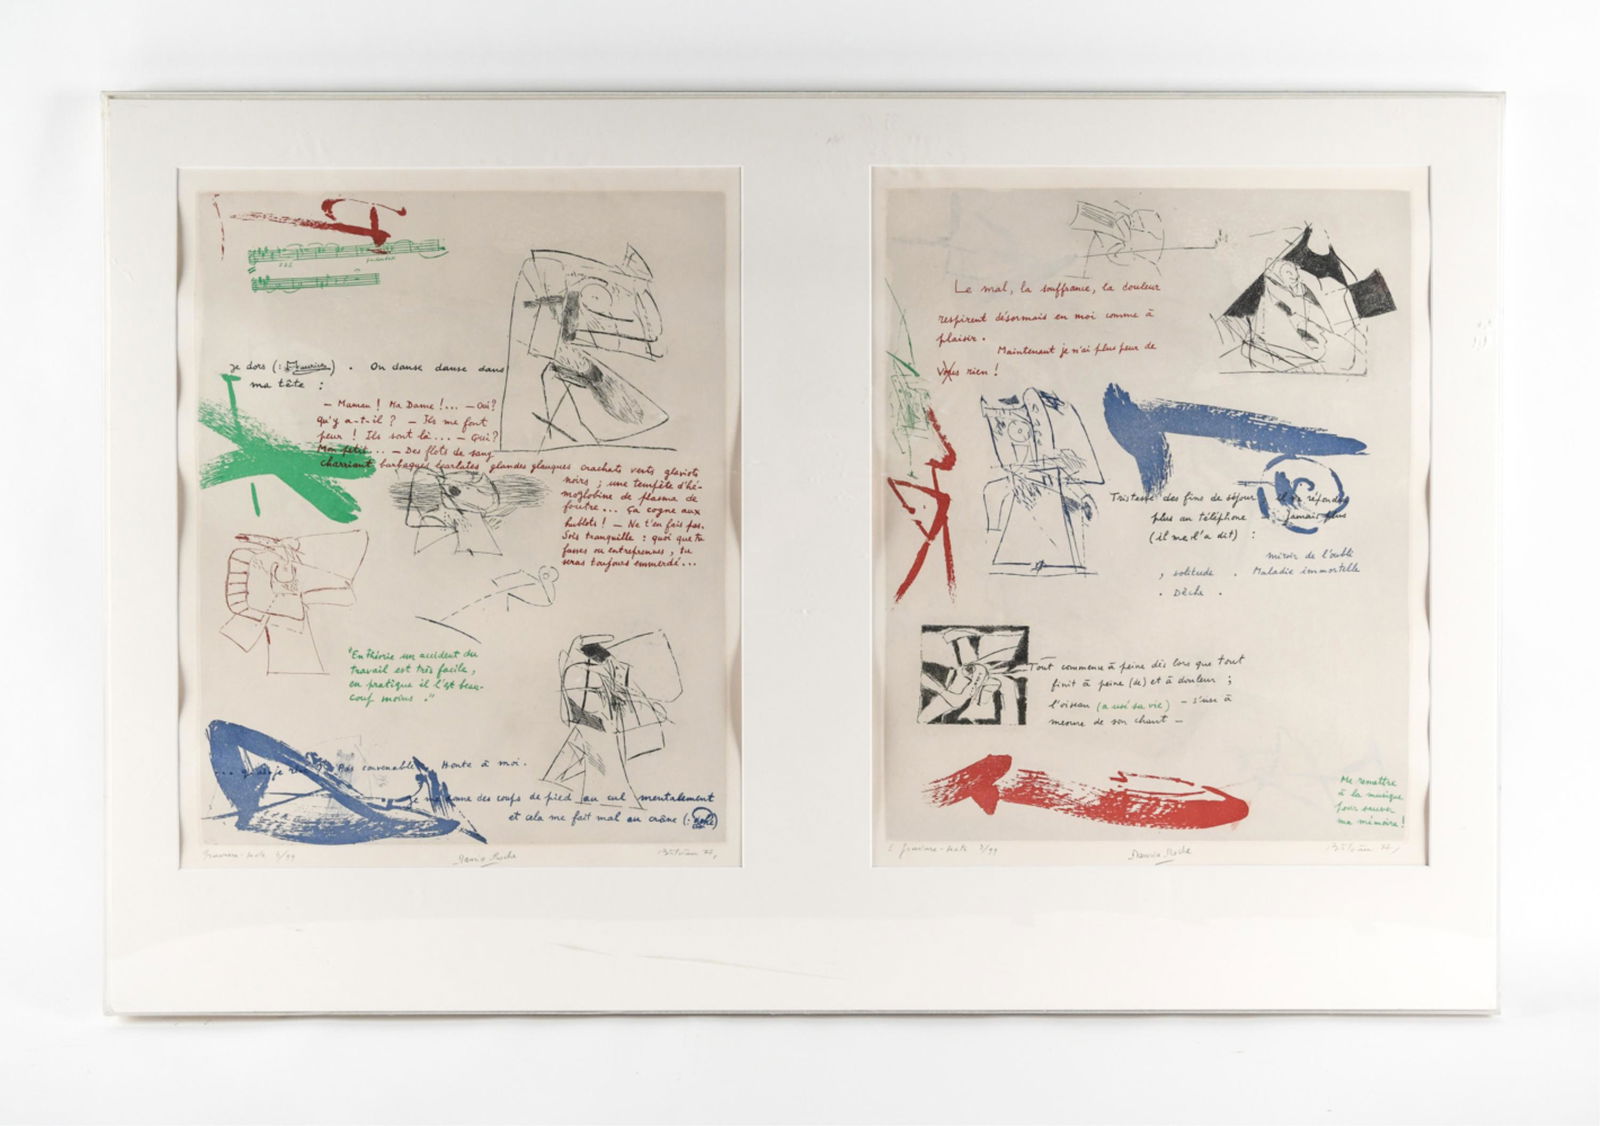 je dors (: Maurice) . On danse danse dans
ma tête :
– Maman ! Ma Dame !... – Oui ?
qu'y a-t-il ? – Ils me font
peur ! Ils sont là... – Qui ?
Mon petit... – Des flots de sang
charriant barbaques écarlates glandes glauques crachats verts glaviots
noirs ; une tempête d'hé-
moglobine de plasma de
foutre... ça cogne aux
hublots ! – Ne t'en fais pas.
Sois tranquille : quoi que tu
fasses ou entreprennes, tu
seras toujours emmerdé...
"En théorie un accident du
travail est très facile,
en pratique il l'est beau-
coup moins."
... Pas convenable. Honte à moi.
je me donne des coups de pied au cul mentalement
et cela me fait mal au crâne (:
Gravure-texte 3/99
Le mal, la souffrance, la douleur
respirent désormais en moi comme à
plaisir.
Maintenant je n'ai plus peur de
rien !
Tristesse des fins de séjour il ne répondra
plus au téléphone – Jamais plus
(il me l'a dit) :
miroir de l'oubli
, solitude . Maladie immortelle
. Dèche .
Tout commence à peine dès lors que tout
finit à peine (de) et à douleur ;
l'oiseau (a usé sa vie) – s'use à
mesure de son chant –
Me remettre
à la musique
pour sauver
ma mémoire !
Gravure-texte 3/99